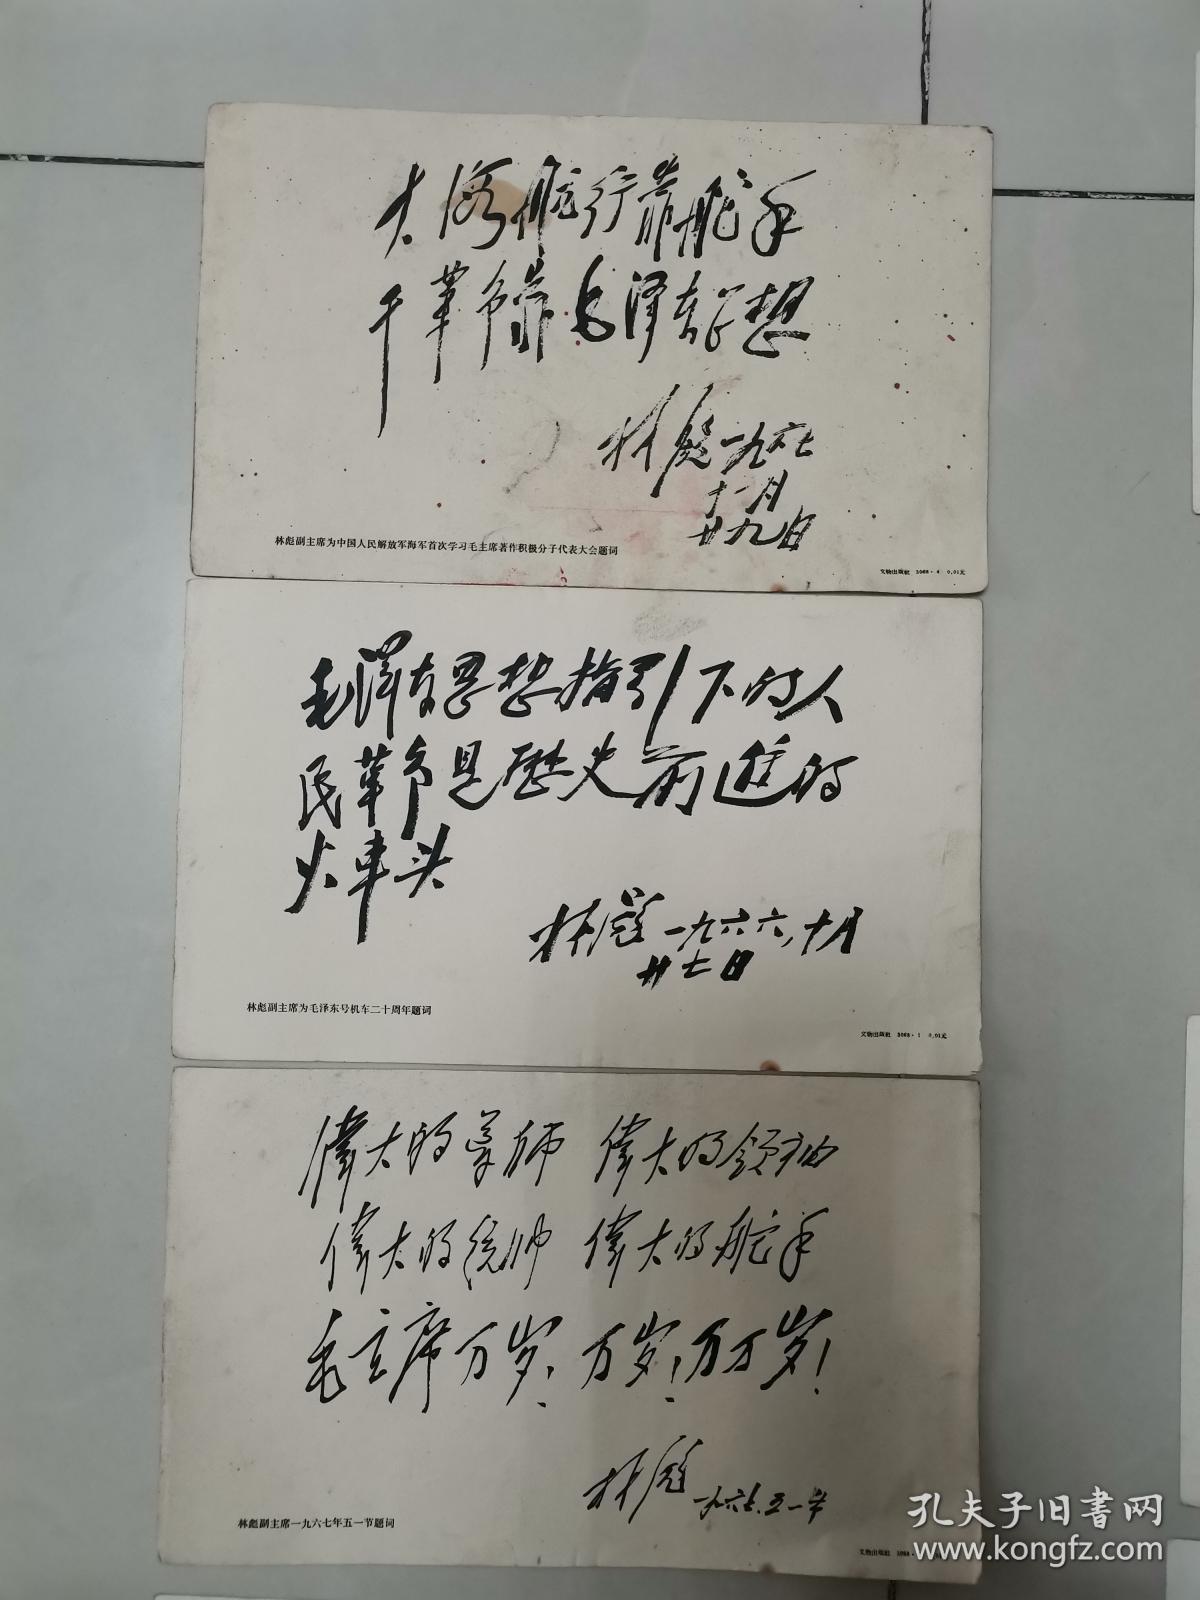 大海航行靠舵手
干革命靠毛泽东思想
林彪 一九六七
十一月
廿九日
林彪副主席为中国人民解放军海军首次学习毛主席著作积极分子代表大会题词
文物出版社 1968·4 0.01元
毛泽东思想指引下的人
民革命是歷史前進的
火車头
林彪 一九六六,十月
廿七日
林彪副主席为毛泽东号机车二十周年题词
文物出版社 1968·1 0.01元
偉大的导师 偉大的领袖
偉大的统帅 偉大的舵手
毛主席万岁!万岁!万万岁!
林彪 一九六七.五一节
林彪副主席一九六七年五一节题词
文物出版社
孔夫子旧书网
www.kongfz.com